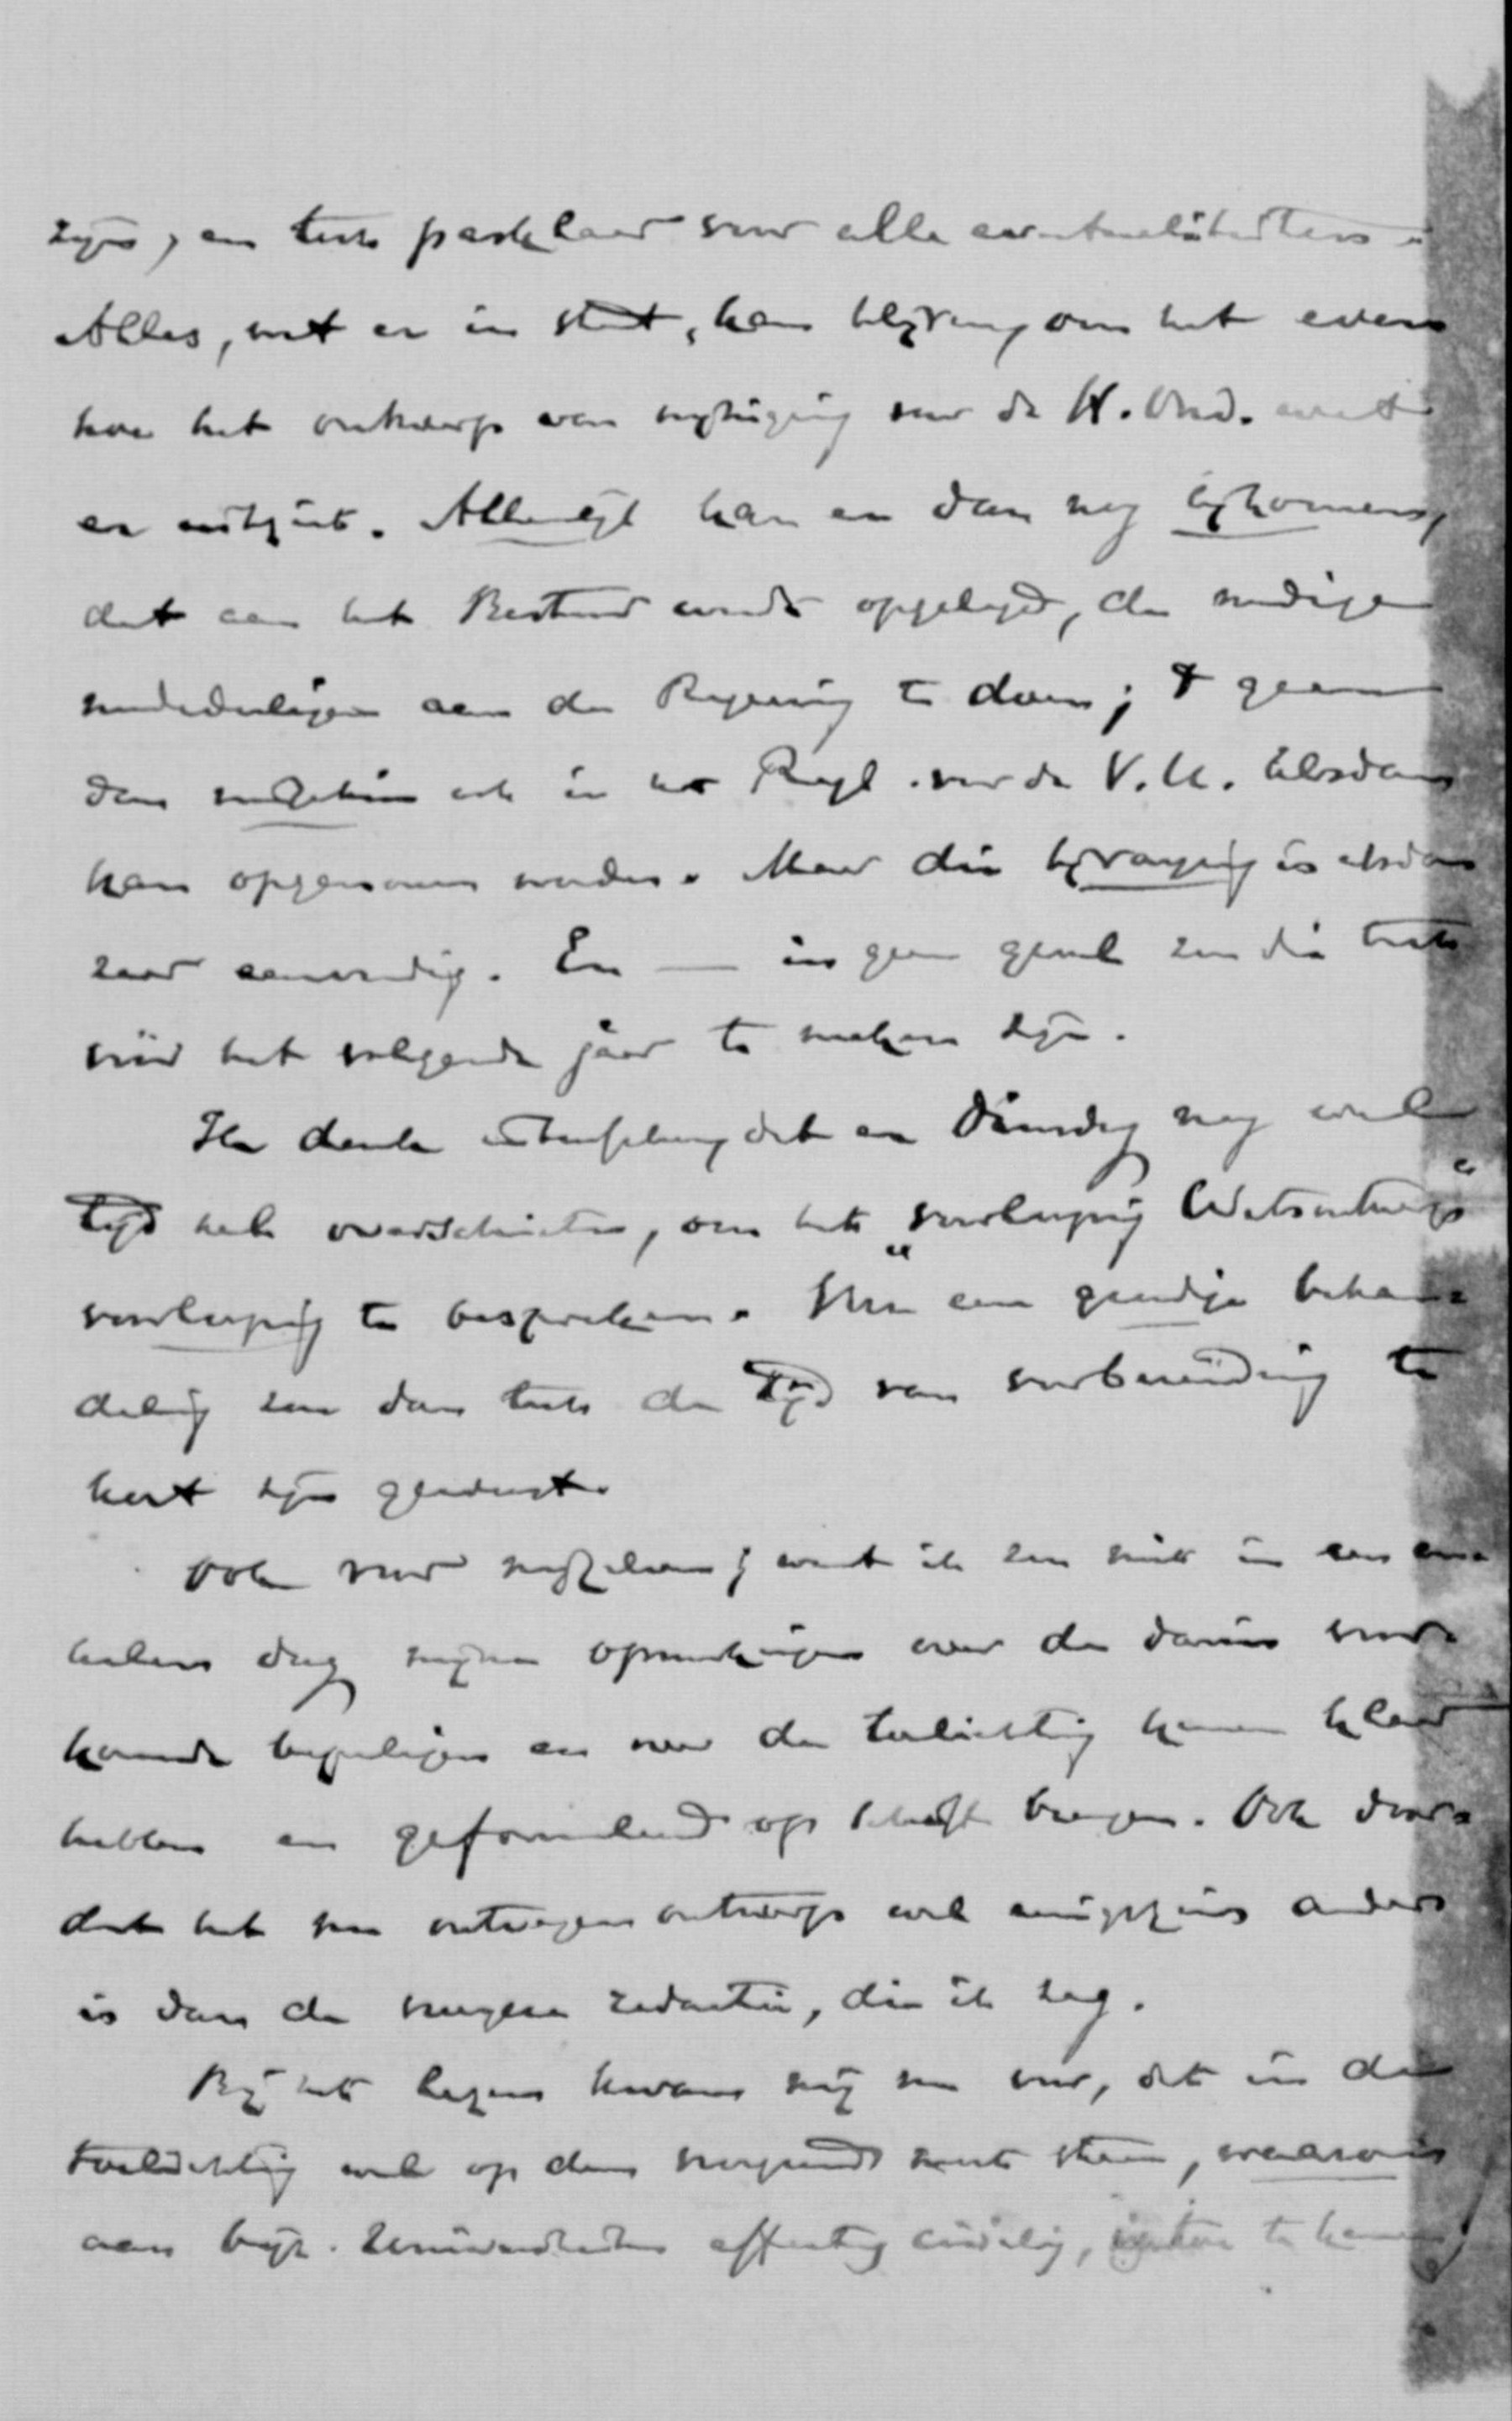 zijn, en toch pasklaar voor alle eventualiteiten.
Alles, wat er in staat, kan blijven, om het even
hoe het ontwerp van wijziging voor de H. Ond. wet
er uitziet. Allicht kan er dan nog bijkomen,
dat aan het Bestuur wordt opgelegd, de noodige
mededeelingen aan de Regeering te doen; &
dan ook in het Regl. voor de V.U. alsdan
kan opgenomen worden. Maar die bijvoeging is alsdan
zeer eenvoudig. En — in geen geval zou die toch
vóór het volgende jaar te maken zijn.
Ik denk dat er Dinsdag nog wel
tijd zal overschieten, om het „voorloopig Wetsontwerp"
voorloopig te bespreken. Voor een grondige behan-
deling zou dan toch de tijd van voorbereiding te
kort zijn geweest.
Ook voor mijzelven; want ik zou niet in een en-
kelen dag mijne opmerkingen over de daarin voor-
komende bepalingen en over de toelichting kunnen klaar
hebben en geformuleerd op schrift brengen. Ook door-
dat het nu ontvangen ontwerp wel eenigszins anders
is dan de vroegere redactie, die ik zag.
Bij het lezen kwam mij nu voor, dat in de
toelichting wel op den voorgrond moet staan, waarom
aan bijz. Universiteiten effectus civilis, te kennen